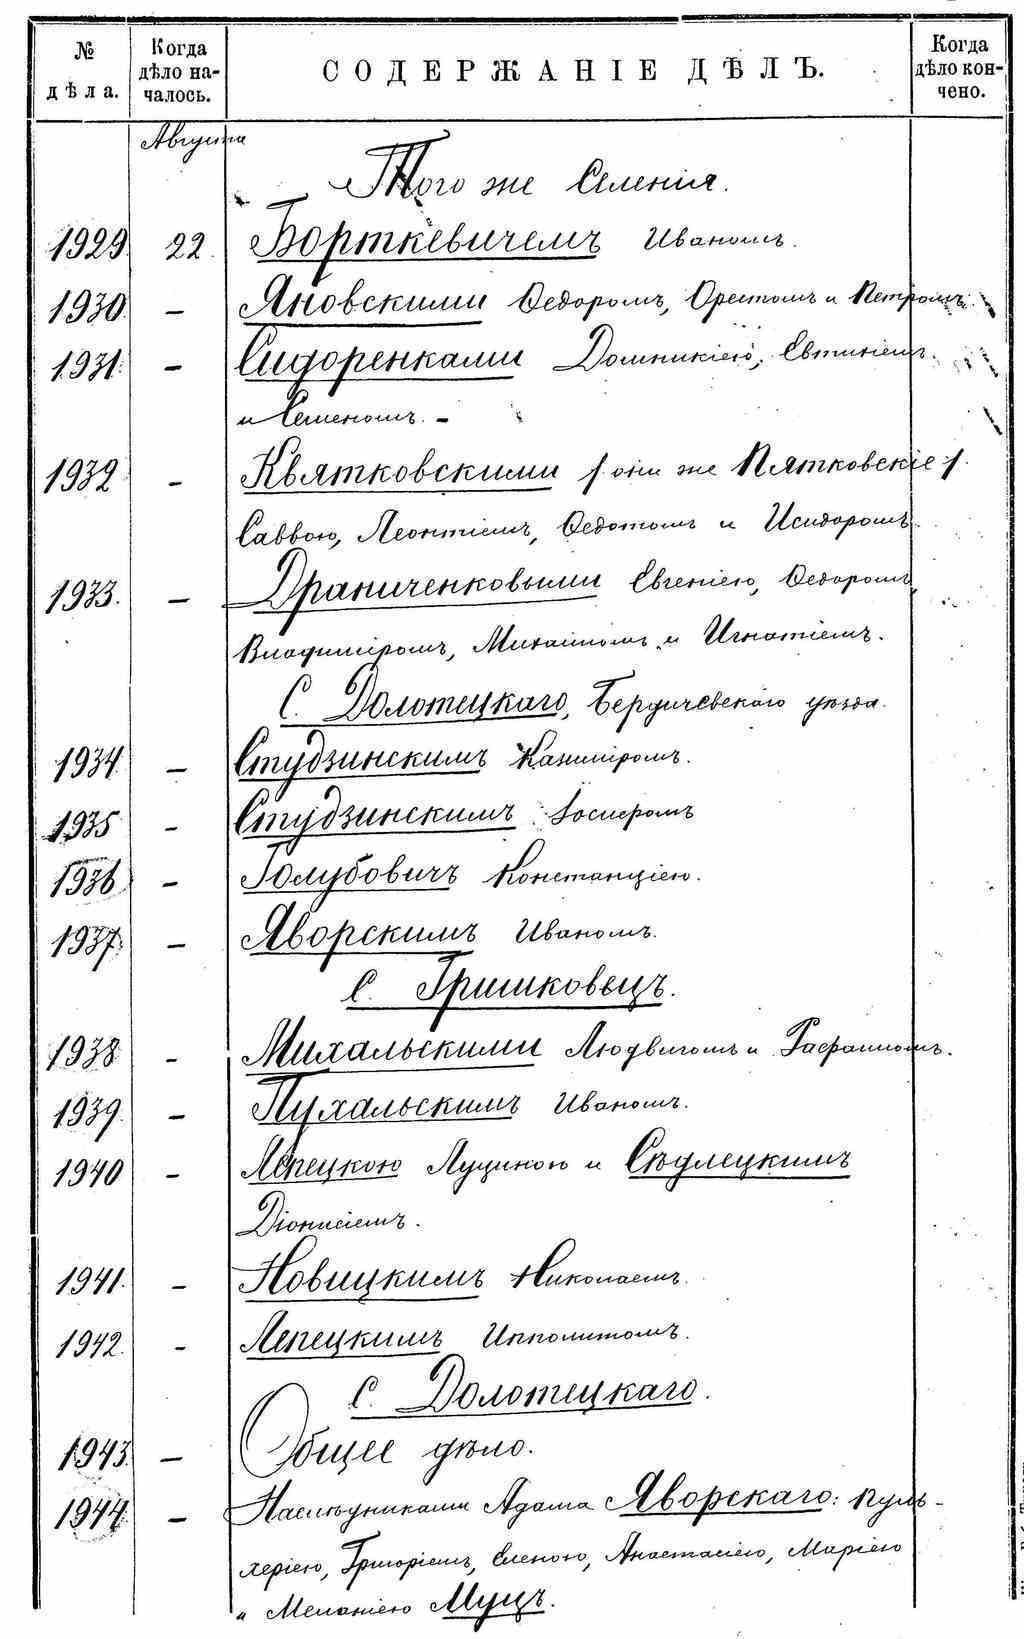 № дѣла. Когда дѣло началось. СОДЕРЖАНІЕ ДѢЛЪ. Когда дѣло кончено.
Августа
Того же Селенія.
1929. 22. Борткевичемъ Иваномъ.
1930. – Яновскими Ѳедоромъ, Орестомъ и Петромъ.
1931. – Сидоренками Домникіею, Евтихіемъ
и Семеномъ. –
1932 – Квятковскими /. они же Пятковскіе ./.
Саввою, Леонтіемъ, Ѳедотомъ и Исидоромъ.
1933. – Драниченковыми Евгеніею, Ѳедоромъ,
Владиміромъ, Михаиломъ и Игнатіемъ.
С. Долотецкаго, Бердичевскаго уѣзда.
1934. – Студзинскимъ Казиміромъ.
1935 – Студзинскимъ Іосифомъ
1936 – Голубовичъ Констанціею.
1937. – Яворскимъ Иваномъ.
С. Гришковецъ.
1938 – Михальскими Людвигомъ и Рафаиломъ.
1939. – Пухальскимъ Иваномъ.
1940 – Лепецкою Луциною и Сѣдлецкимъ
Діонисіемъ.
1941. – Новицкимъ Николаемъ.
1942. – Лепецкимъ Ипполитомъ.
С. Долотецкаго.
1943. – Общее дѣло.
1944. – Наслѣдниками Адама Яворскаго: Пуль-
херіею, Григоріемъ, Еленою, Анастасіею, Маріею
и Меланіею Муцъ.